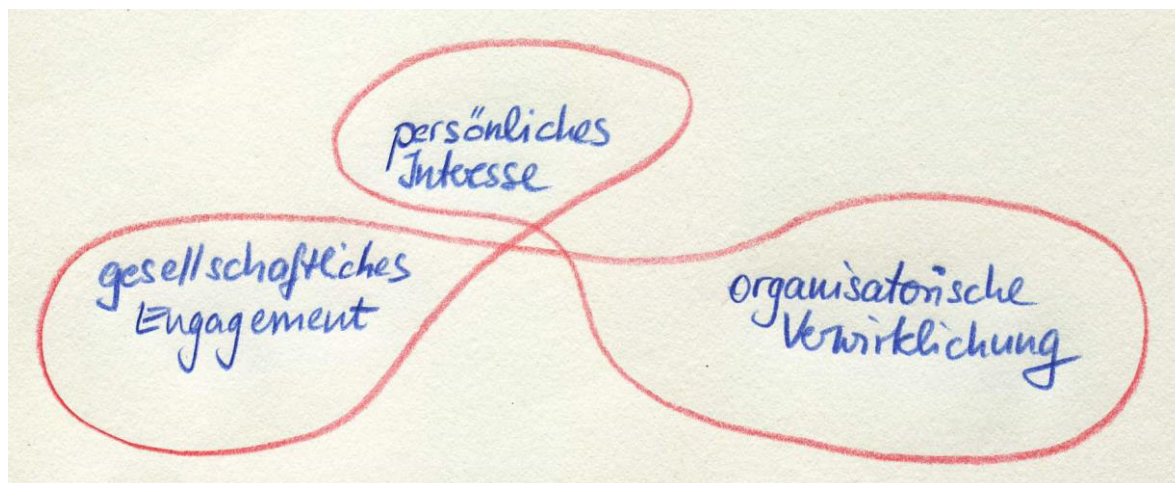 persönliches
Interesse
gesellschaftliches
Engagement
organisatorische
Verwirklichung